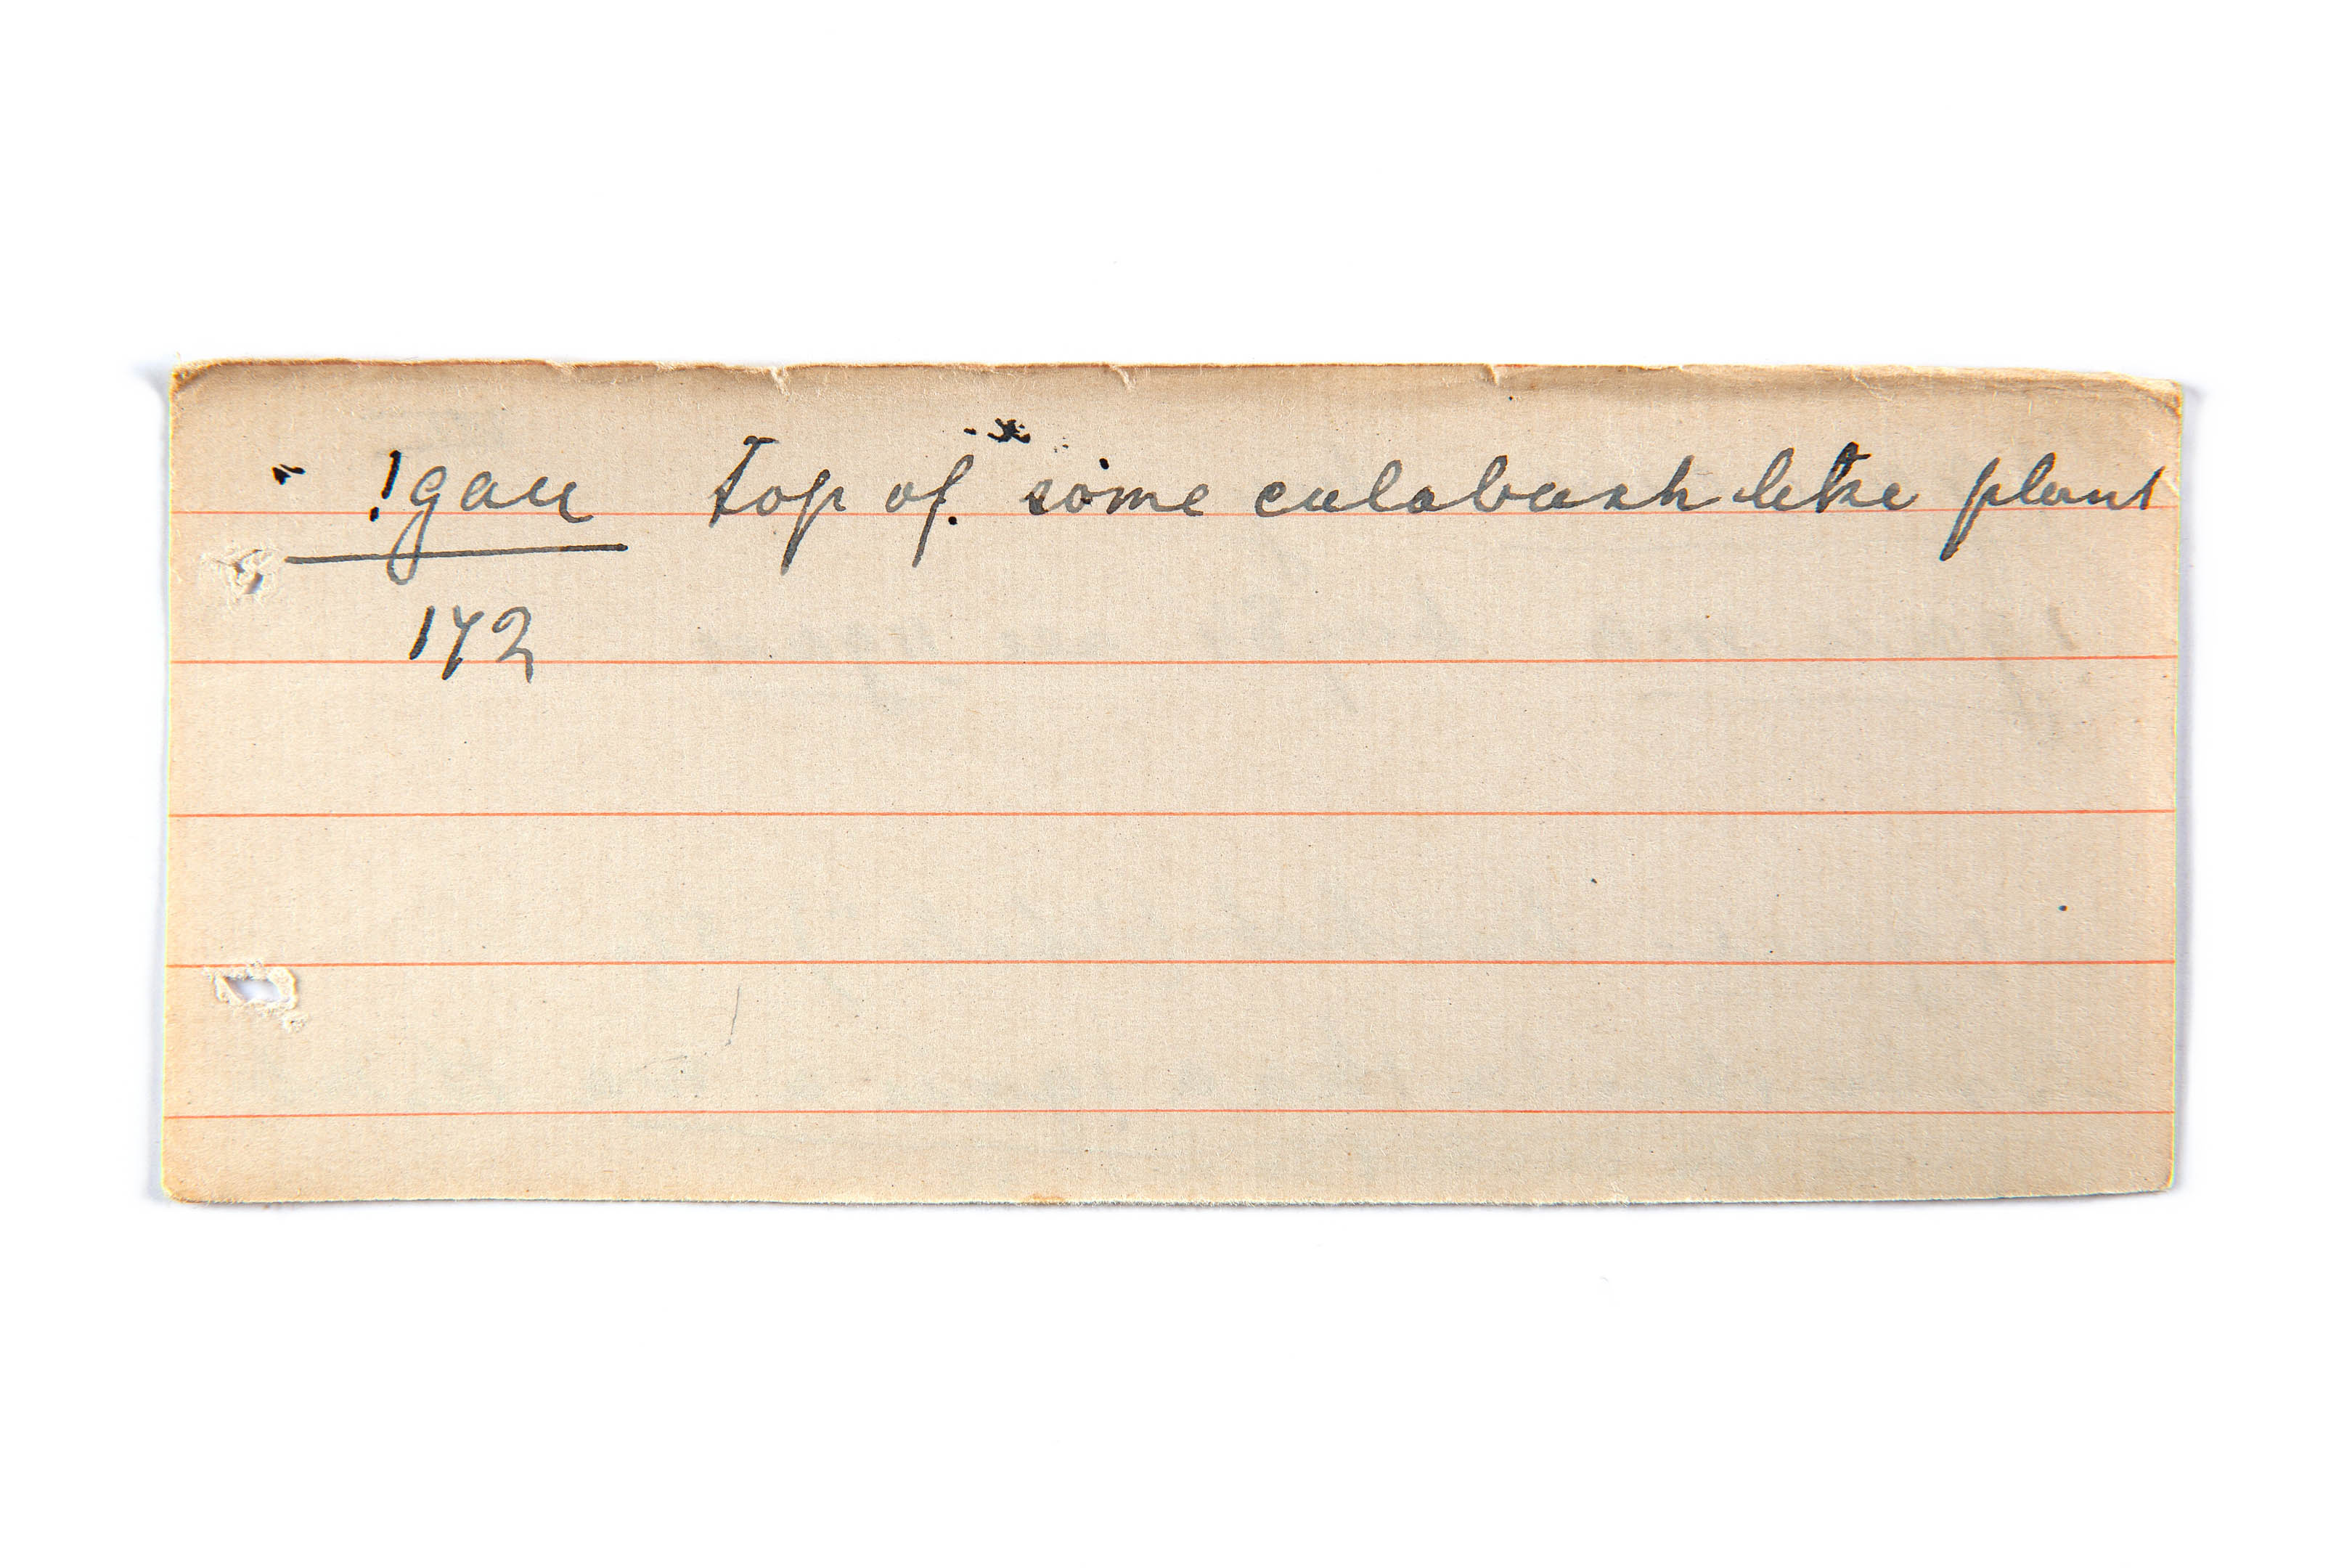 !gau top of some calabash like plant
172